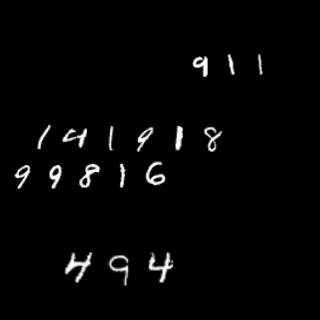 911
141918
99816
494